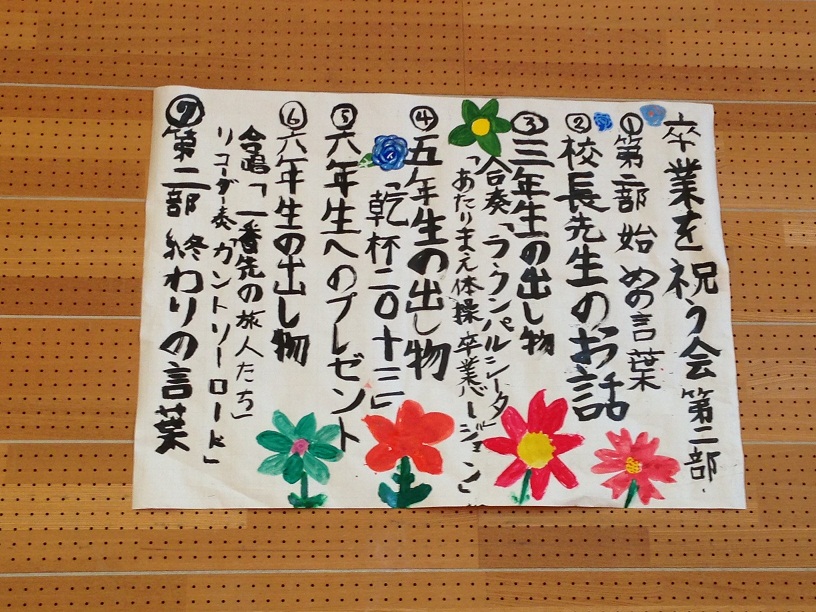 卒業を祝う会 第二部
①第二部 始めの言葉
②校長先生のお話
③三年生の出し物
合奏「ラ・クンパルシータ」
「あたりまえ体操 卒業バージョン」
④五年生の出し物
「乾杯二〇十三」
⑤六年生へのプレゼント
⑥六年生の出し物
合唱「一番先の旅人たち」
リコーダー奏「カントリーロード」
⑦第二部 終わりの言葉